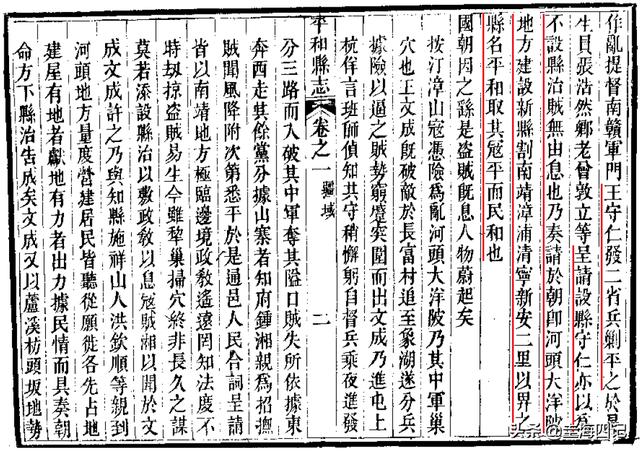 作亂提督南贛軍門王守仁發二省兵剿平之於是
生員張浩然鄉老曾敦立等呈請設縣守仁亦以為
不設縣治賊無由息也乃奏請於朝卽河頭大洋陂
地方建設新縣割南靖漳浦清寧新安二里以界之
縣名平和取其寇平而民和也
國朝因之繇是盜賊旣息人物蔚起矣
按汀漳山寇憑險為亂河頭大洋陂乃其中軍巢
穴也王文成旣破敵於長富村追至象湖遂分兵
據險以逼之賊勢窮蹙突圍而出文成乃進屯上
杭佯言班師偵知其守稍懈躬自督兵乘夜進發
平和縣志 卷之一 疆域 二
分三路而入破其中軍奪其隘口賊失所依據東
奔西走其餘黨分據山寨者知府鍾湘親為招撫
賊聞風降附次第悉平於是通邑人民合詞呈請
皆以南靖地方極臨邊境政敎遙遠罔知法度不
時刼掠盜賊易生今雖犂巢掃穴終非長久之謀
莫若添設縣治以敷政敎以息寇賊湘以聞於文
成文成許之乃與知縣施祥山人洪欽順等親到
河頭地方量度營建居民皆聽從願徙各先占地
建屋有地者獻地有力者出力據民情而具奏朝
命方下縣治告成矣文成又以蘆溪枋頭坂地勢
头条 @主海四记